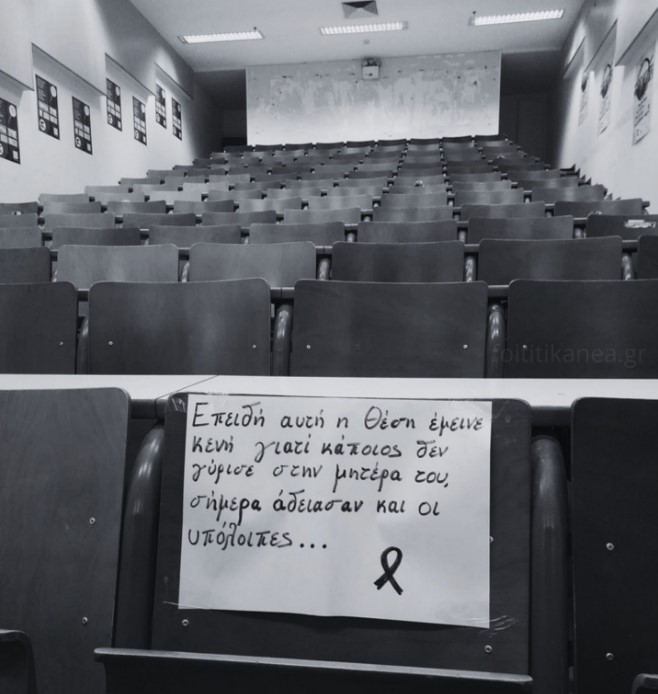 foititikanea.gr
Επειδή αυτή η Θέση έμεινε
κενή γιατί κάποιος δεν
γύρισε στην μητέρα του,
σήμερα άδειασαν και οι
υπόλοιπες...